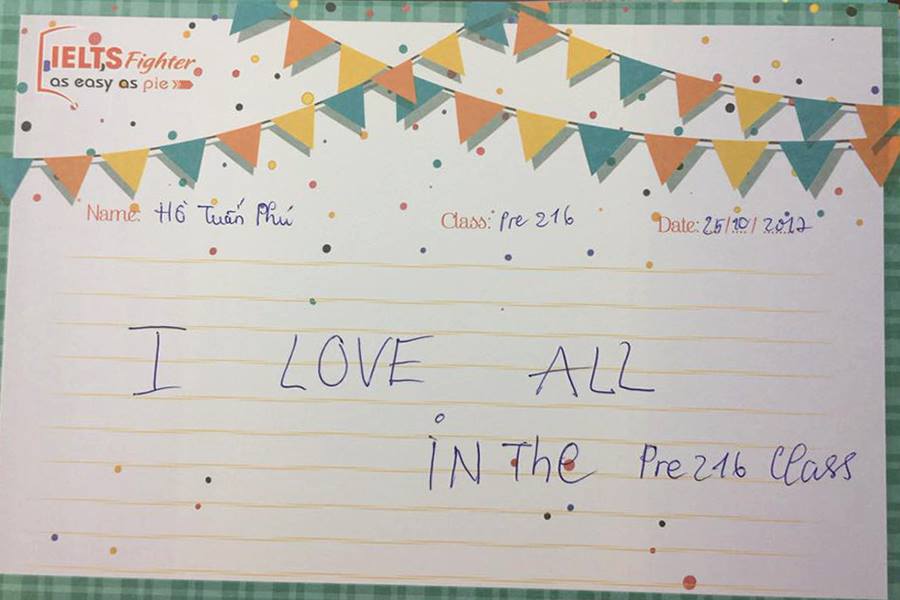 IELTS Fighter
as easy as pie
Name: Hồ Tuấn Phú Class: Pre 216 Date: 25/10/2017
I LOVE ALL
iN The Pre 216 Class